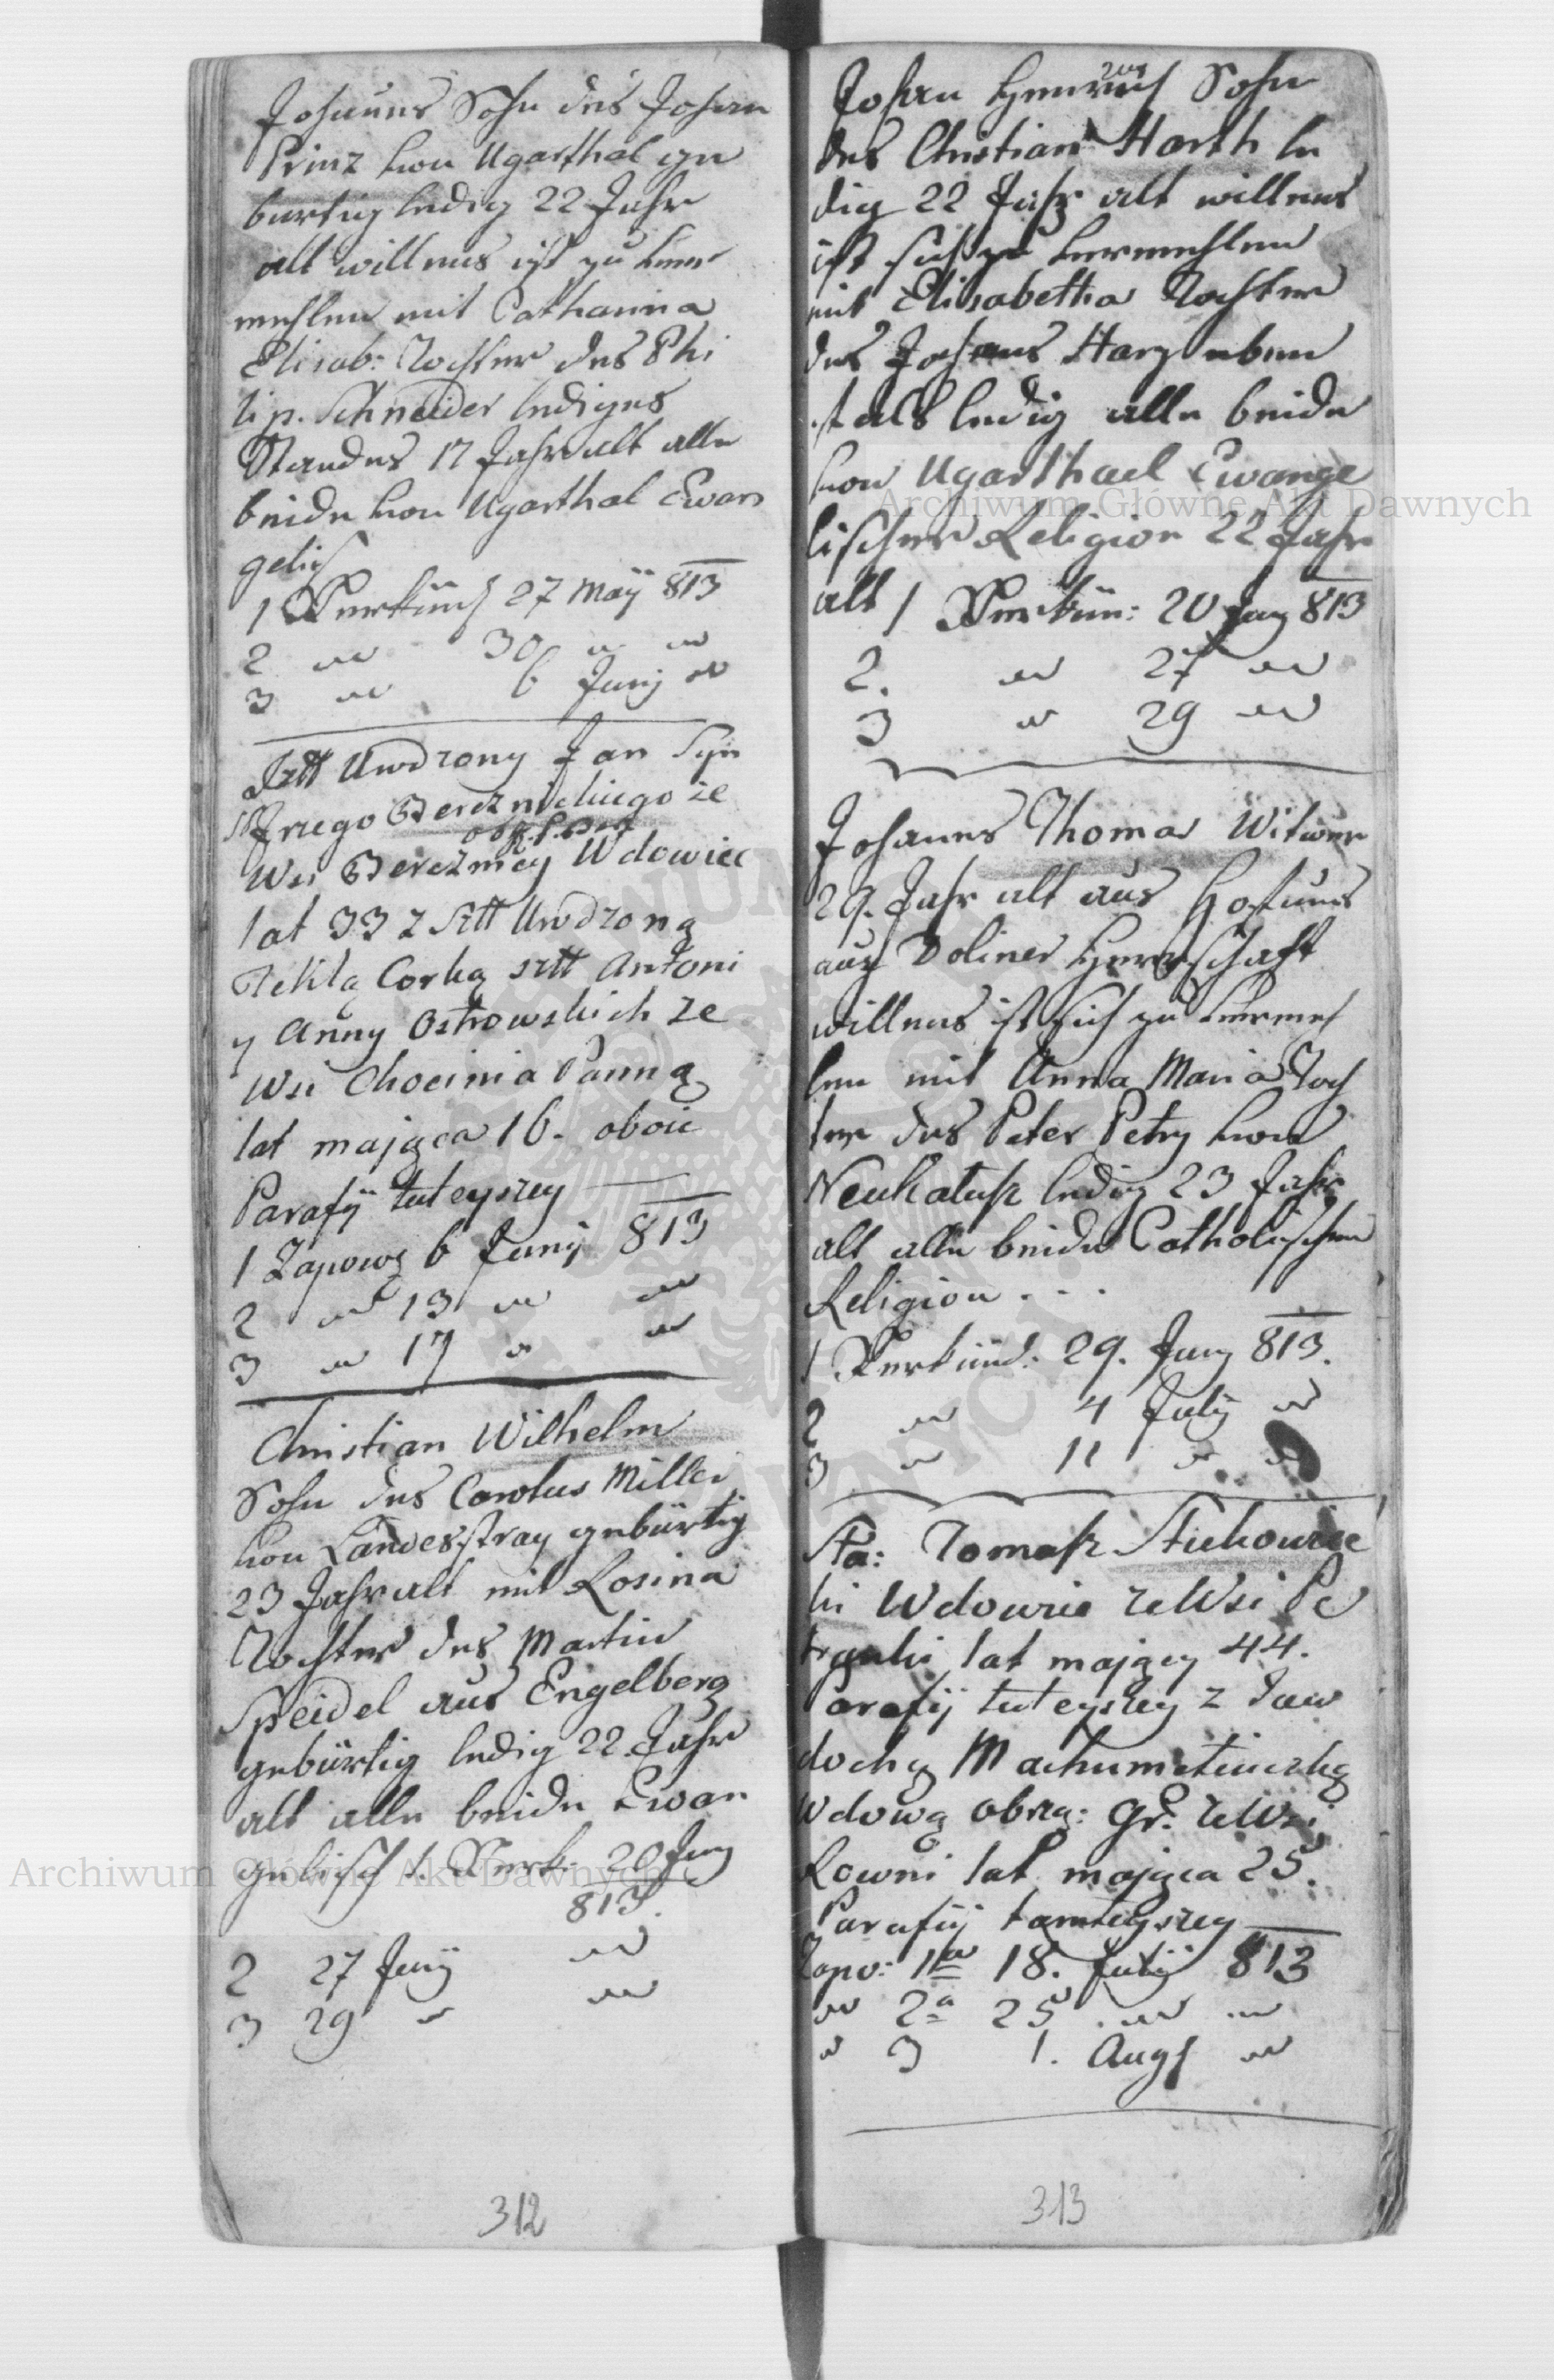 Johanes Sohn des Johan
Prinz von Ugarthal ge
burtig ledig 22 Jahr
alt willens ist zu ver
mehlen mit Catharina
Elisab: Tochter des Phi
lip. Schneider lediges
Standes 17 Jahr alt alle
beide von Ugarthal Evan
gelisch
1 Verkünd 27 May 813
2 " 30 " "
3 " 6 Juny "
Sztt Urodzony Jan Syn
Bereznickiego ze
Wsi Bereznicy Wdowiec
lat 33 z Sztt Urodzoną
Teklą Corką sztt Antoni
y Anny Ostrowskich ze
Wsi Chocinia Panną
lat mająca 16. oboie
Parafij tuteyszey
1 Zapowg 6 Juny 813
2 " 13 " "
3 " 17 " "
Christian Wilhelm
Sohn des Carolus Miller
von Landesstray gebürtig
23 Jahr alt mit Rosina
Tochter des Martin
Speidel aus Engelberg
gebürtig ledig 22 Jahr
alt alle beide Evan
gelisch 1. Verk: 20 Juny
813.
2 27 Juny "
3 29 " "
312
Johan Henrich Sohn
des Christian Harth le
dig 22 Jahr alt willens
ist sich zu vermehlen
mit Elisabetha Tochter
des Johanes Harz eben
fals ledig alle beide
von Ugarthael Ewange
lischer Religion 22 Jahr
alt 1 Verkün: 20 Juny 813
2. " 27 "
3 " 29 "
Johanes Thomas Witwer
29. Jahr alt aus
aus Doliner Herrschaft
willens ist sich zu vermeh
len mit Anna Maria Toch
ter des Peter Petry von
Neukalusz ledig 23 Jahr
alt alle beide Catholischen
Religion . . .
1 Verkünd: 29. Juny 813.
2 " 4 July "
3 " 11 " "
Pra: Tomasz
ki Wdowiec ze Wsi Pe
tranki lat maiący 44.
Parafij tuteyszey z Jaw
dochą
Wdową obrzą: Gr: ze Wsi
Rowni lat maiąca 25.
Parafij tamteyszey
Zapo: 1a 18. July 813
" 2a 25 . " "
" 3 1. Augs "
313
Archiwum Główne Akt Dawnych
Archiwum Główne Akt Dawnych